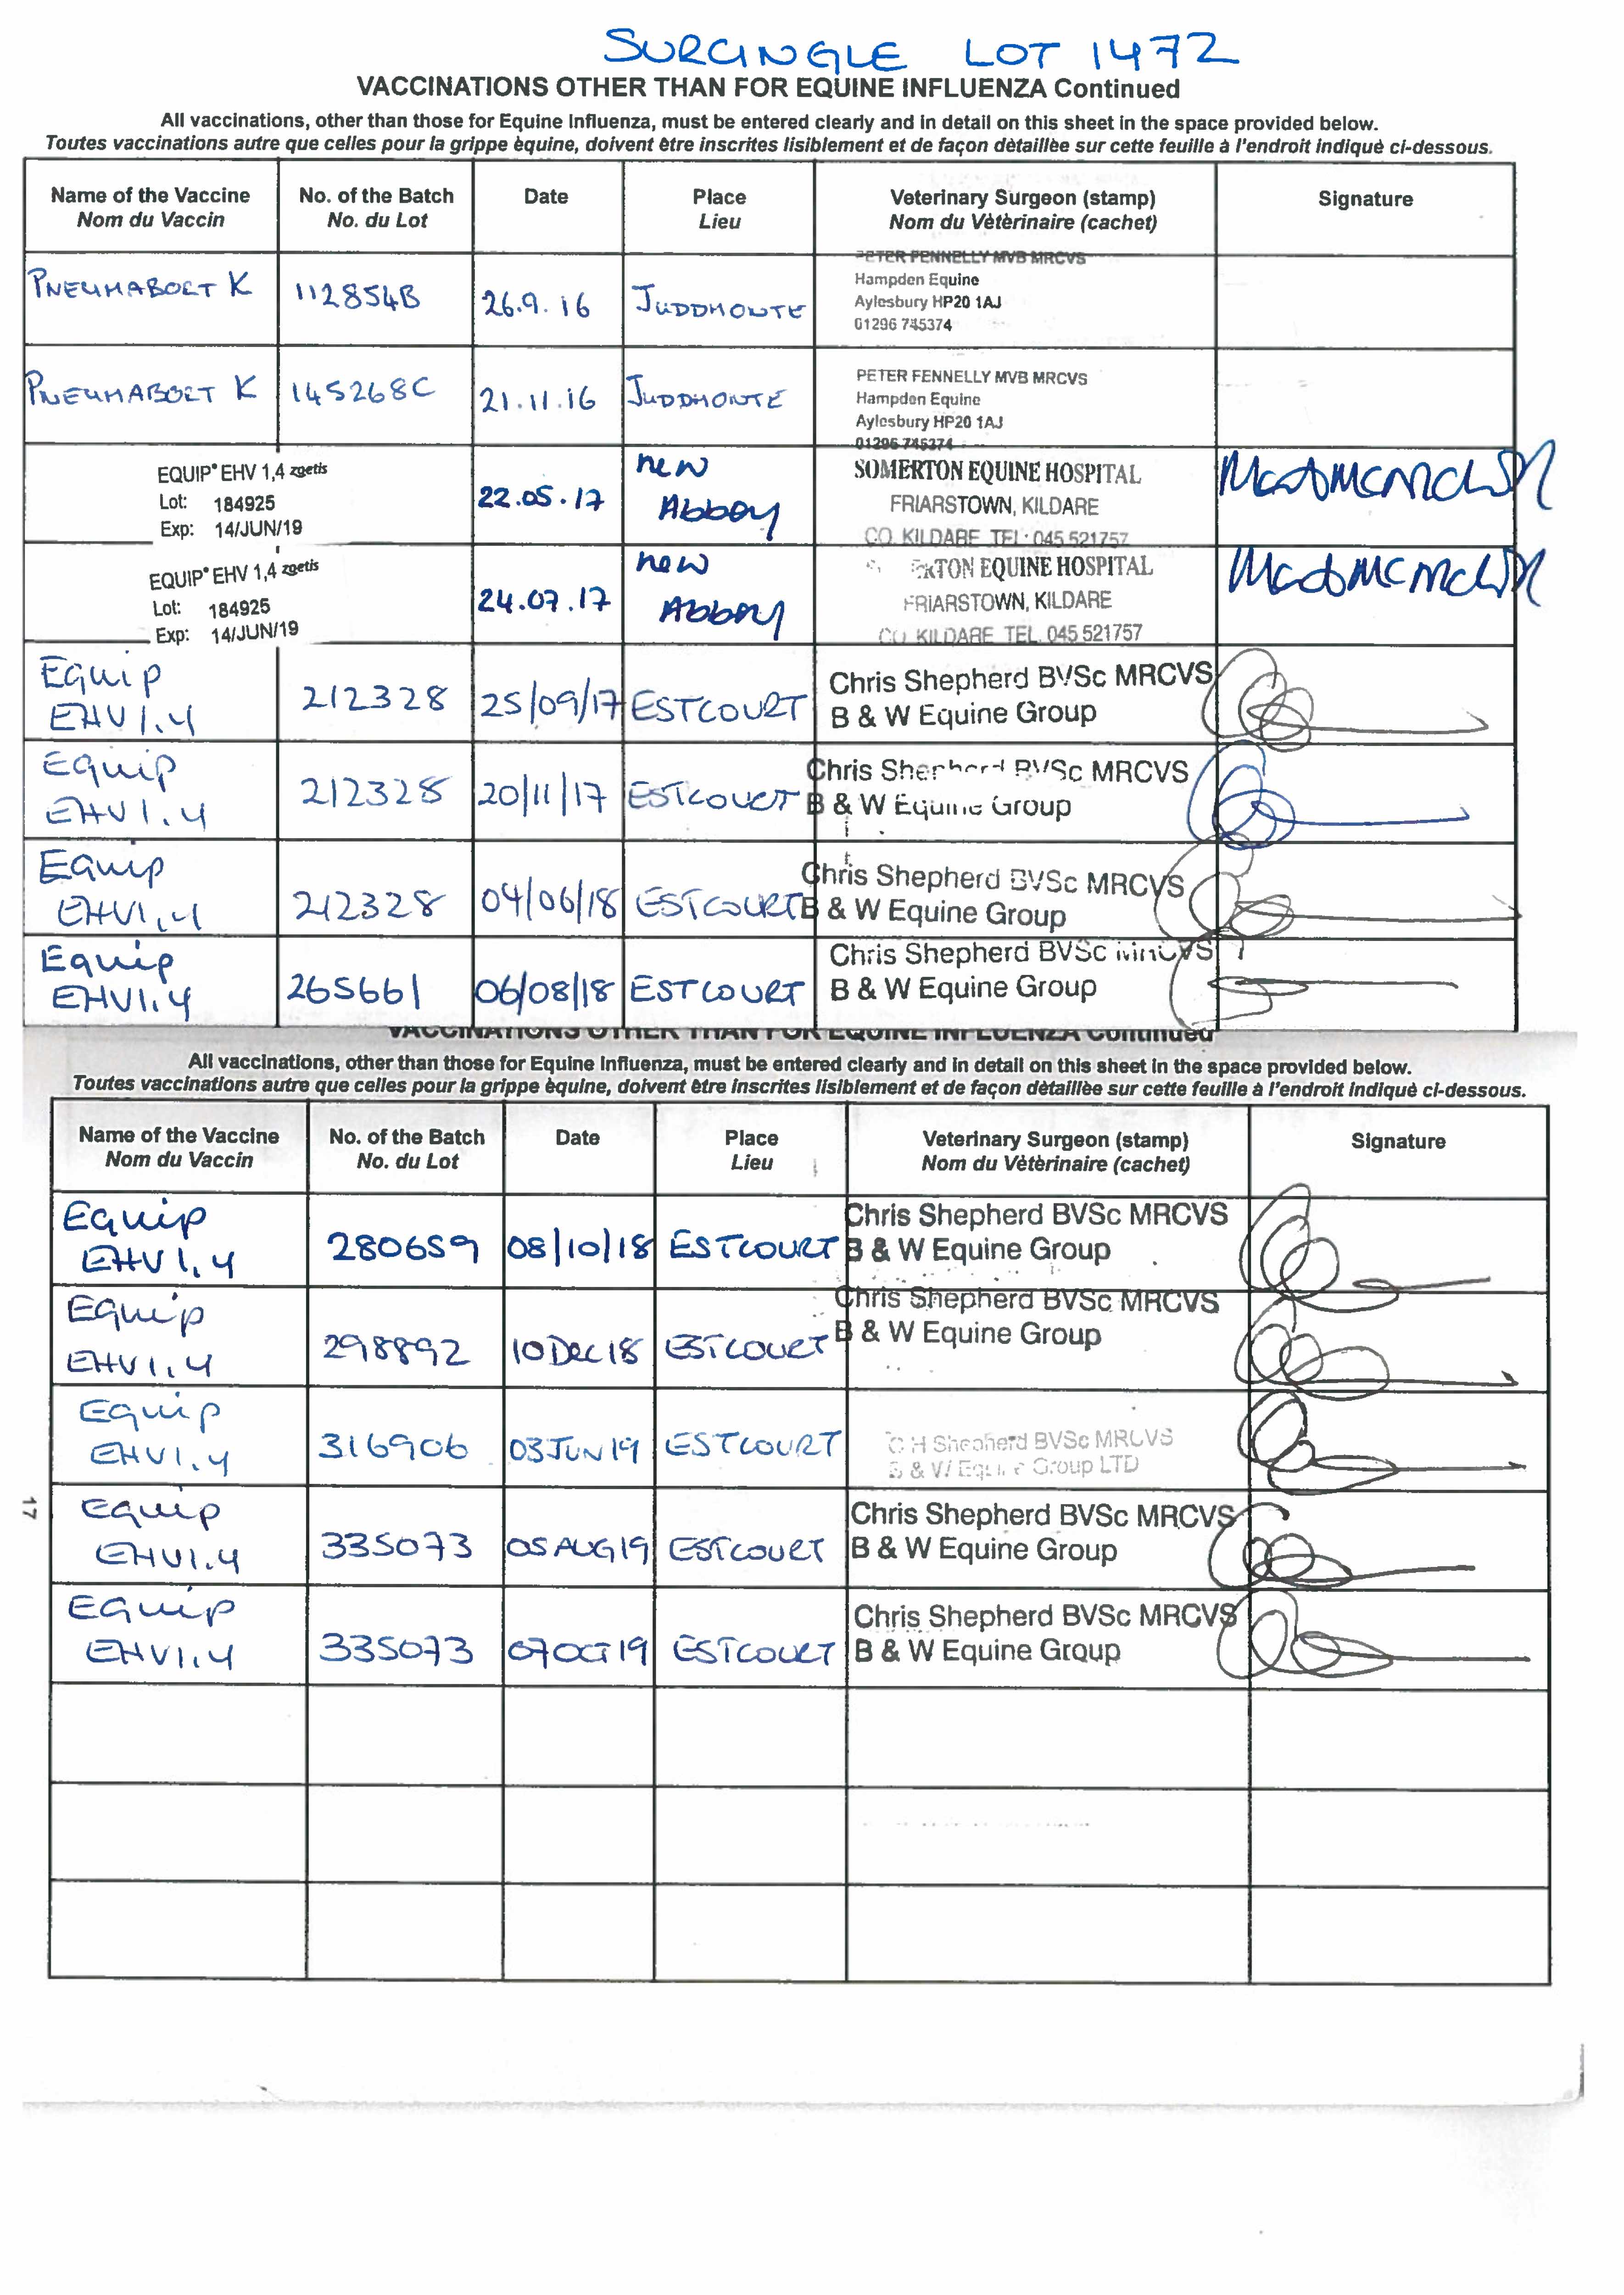 SURCINGLE LOT 1472
VACCINATIONS OTHER THAN FOR EQUINE INFLUENZA Continued
All vaccinations, other than those for Equine Influenza, must be entered clearly and in detail on this sheet in the space provided below.
Toutes vaccinations autre que celles pour la grippe èquine, doivent être inscrites lisiblement et de façon dètaillèe sur cette feuille à l'endroit indiquè ci-dessous.
Name of the Vaccine No. of the Batch Date Place Veterinary Surgeon (stamp) Signature
Nom du Vaccin No. du Lot Lieu Nom du Vètèrinaire (cachet)
PETER FENNELLY MVB MRCVS
PNEUMABORT K 112854B 26.9.16 JUDDMONTE Hampden Equine
Aylesbury HP20 1AJ
01296 745374
PETER FENNELLY MVB MRCVS
PNEUMABORT K 145268C 21.11.16 JUDDMONTE Hampden Equine
Aylesbury HP20 1AJ
01296 745374
EQUIP® EHV 1,4 zoetis new SOMERTON EQUINE HOSPITAL
Lot: 184925 22.05.17 Abbey FRIARSTOWN, KILDARE
Exp: 14/JUN/19 CO. KILDARE TEL: 045 521757
EQUIP® EHV 1,4 zoetis new EQUINE HOSPITAL
Lot: 184925 24.07.17 Abbey FRIARSTOWN, KILDARE
Exp: 14/JUN/19 CO. KILDARE TEL. 045 521757
Equip Chris Shepherd BVSc MRCVS
EHV1.4 212328 25/09/17 ESTCOURT B & W Equine Group
Equip Chris Shepherd BVSc MRCVS
EHV1.4 212328 20/11/17 ESTCOURT B & W Equine Group
Equip Chris Shepherd BVSc MRCVS
EHV1,4 212328 04/06/18 ESTCOURT B & W Equine Group
Equip Chris Shepherd BVSc MRCVS
EHV1.4 265661 06/08/18 ESTCOURT B & W Equine Group
VACCINATIONS OTHER THAN FOR EQUINE INFLUENZA Continued
All vaccinations, other than those for Equine Influenza, must be entered clearly and in detail on this sheet in the space provided below.
Toutes vaccinations autre que celles pour la grippe èquine, doivent être inscrites lisiblement et de façon dètaillèe sur cette feuille à l'endroit indiquè ci-dessous.
Name of the Vaccine No. of the Batch Date Place Veterinary Surgeon (stamp) Signature
Nom du Vaccin No. du Lot Lieu Nom du Vètèrinaire (cachet)
Equip Chris Shepherd BVSc MRCVS
EHV 1,4 280659 08/10/18 ESTCOURT B & W Equine Group
Equip Chris Shepherd BVSc MRCVS
EHV1,4 298892 10 Dec 18 ESTCOURT B & W Equine Group
Equip C H Shepherd BVSc MRCVS
EHV1.4 316906 03 JUN 19 ESTCOURT B & W Equine Group LTD
17
Equip Chris Shepherd BVSc MRCVS
EHV1.4 335073 05 AUG 19 ESTCOURT B & W Equine Group
Equip Chris Shepherd BVSc MRCVS
EHV1.4 335073 07 OCT 19 ESTCOURT B & W Equine Group